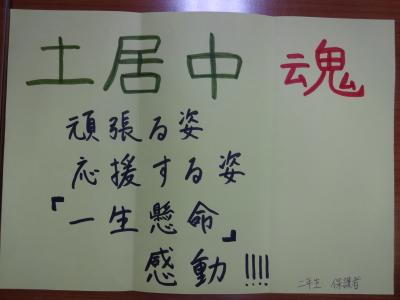 土居中魂
頑張る姿
応援する姿
『一生懸命』
感動!!!!
二年生 保護者